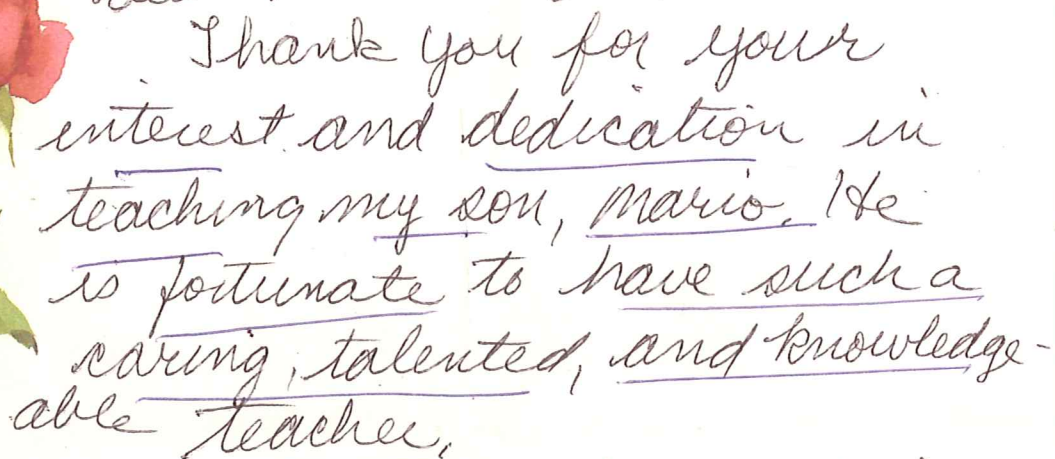 Thank you for your
interest and dedication in
teaching my son, Mario. He
is fortunate to have such a
caring, talented, and knowledge-
able teacher.